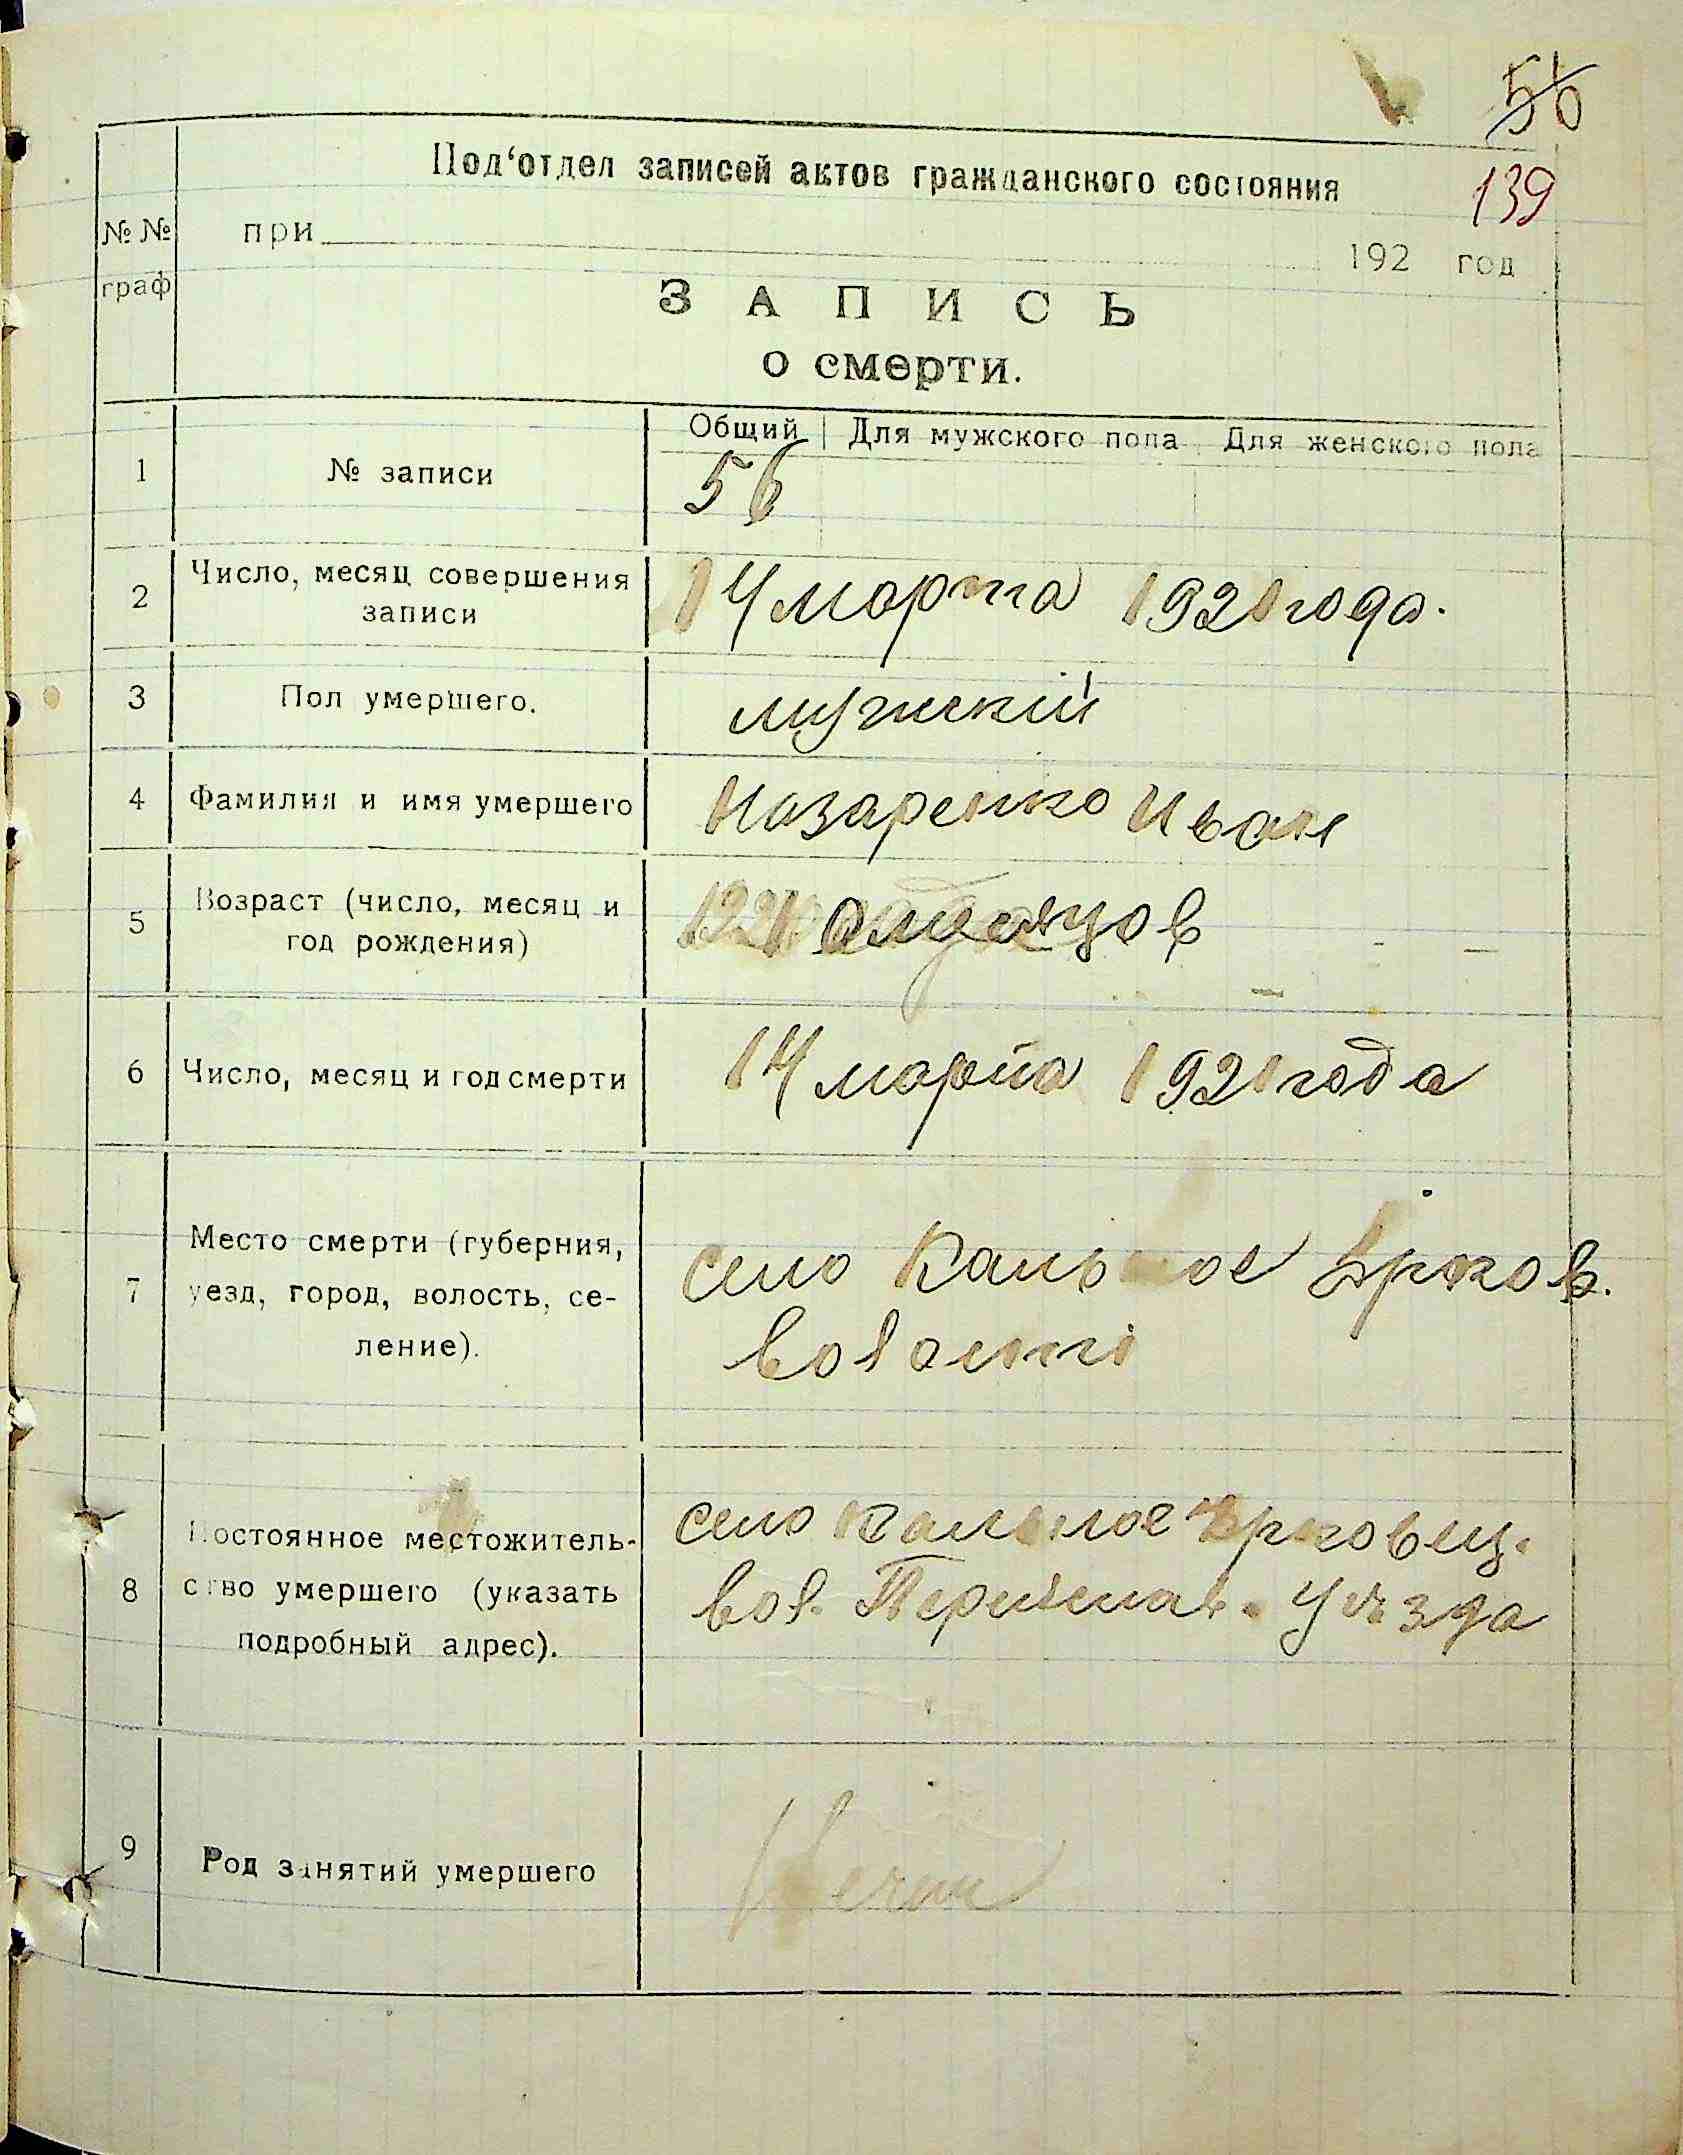 56
139
Под‘отдел записей актов гражданского состояния
№ №
граф
при
192 год
ЗАПИСЬ
о смерти.
Общий Для мужского пола Для женского пола
1 № записи 56
2 Число, месяц совершения
записи
14 марта 1921 года.
3 Пол умершего. мужскій
4 Фамилия и имя умершего Назаренко Иван
5 Возраст (число, месяц и
год рождения)
месяцов
6 Число, месяц и год смерти 14 марта 1921 года
7 Место смерти (губерния,
уезд, город, волость, се-
ление).
село
волости
8 Постоянное местожитель-
ство умершего (указать
подробный адрес).
село
вол. уѣзда
9 Род занятий умершего